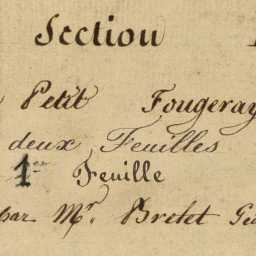 Section
Petit Fougeray
deux Feuilles
1ere Feuille
par Mr. Bretet